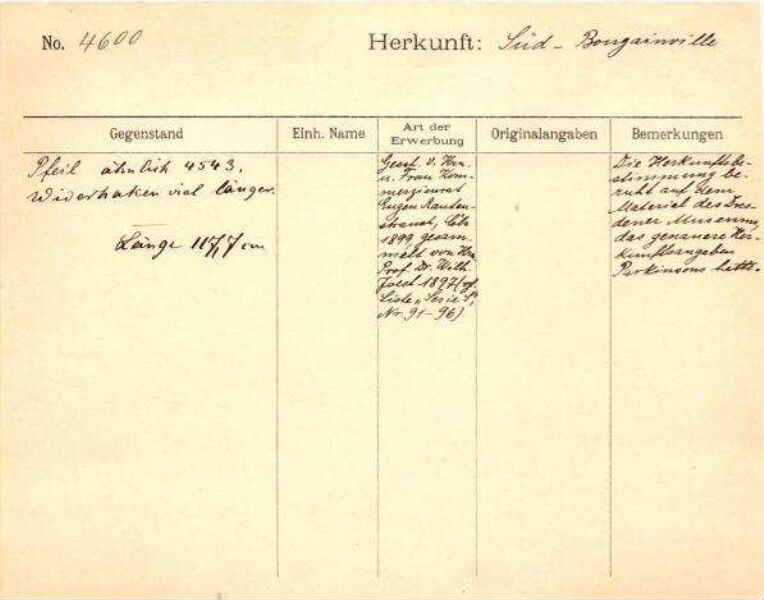 No. 4600
Herkunft: Süd-Bougainville
Gegenstand
Einh. Name
Art der
Erwerbung
Originalangaben
Bemerkungen
Pfeil ähnlich 4543,
Widerhaken viel länger.
Länge 117,7 cm
Gesch. v. Hrn.
u. Frau Kom-
merzienrat
Eugen Rauten-
strauch, Cöln
1899, gesam-
melt von Hrn.
Prof. Dr. Wilh.
Joest 1897 (cf.
Liste „Serie S",
Nr. 91-96).
Die Herkunftsbe-
stimmung be-
ruht auf dem
Material des Dres-
dener Museums,
das genauere Her-
kunftsangaben
Parkinsons hatte.